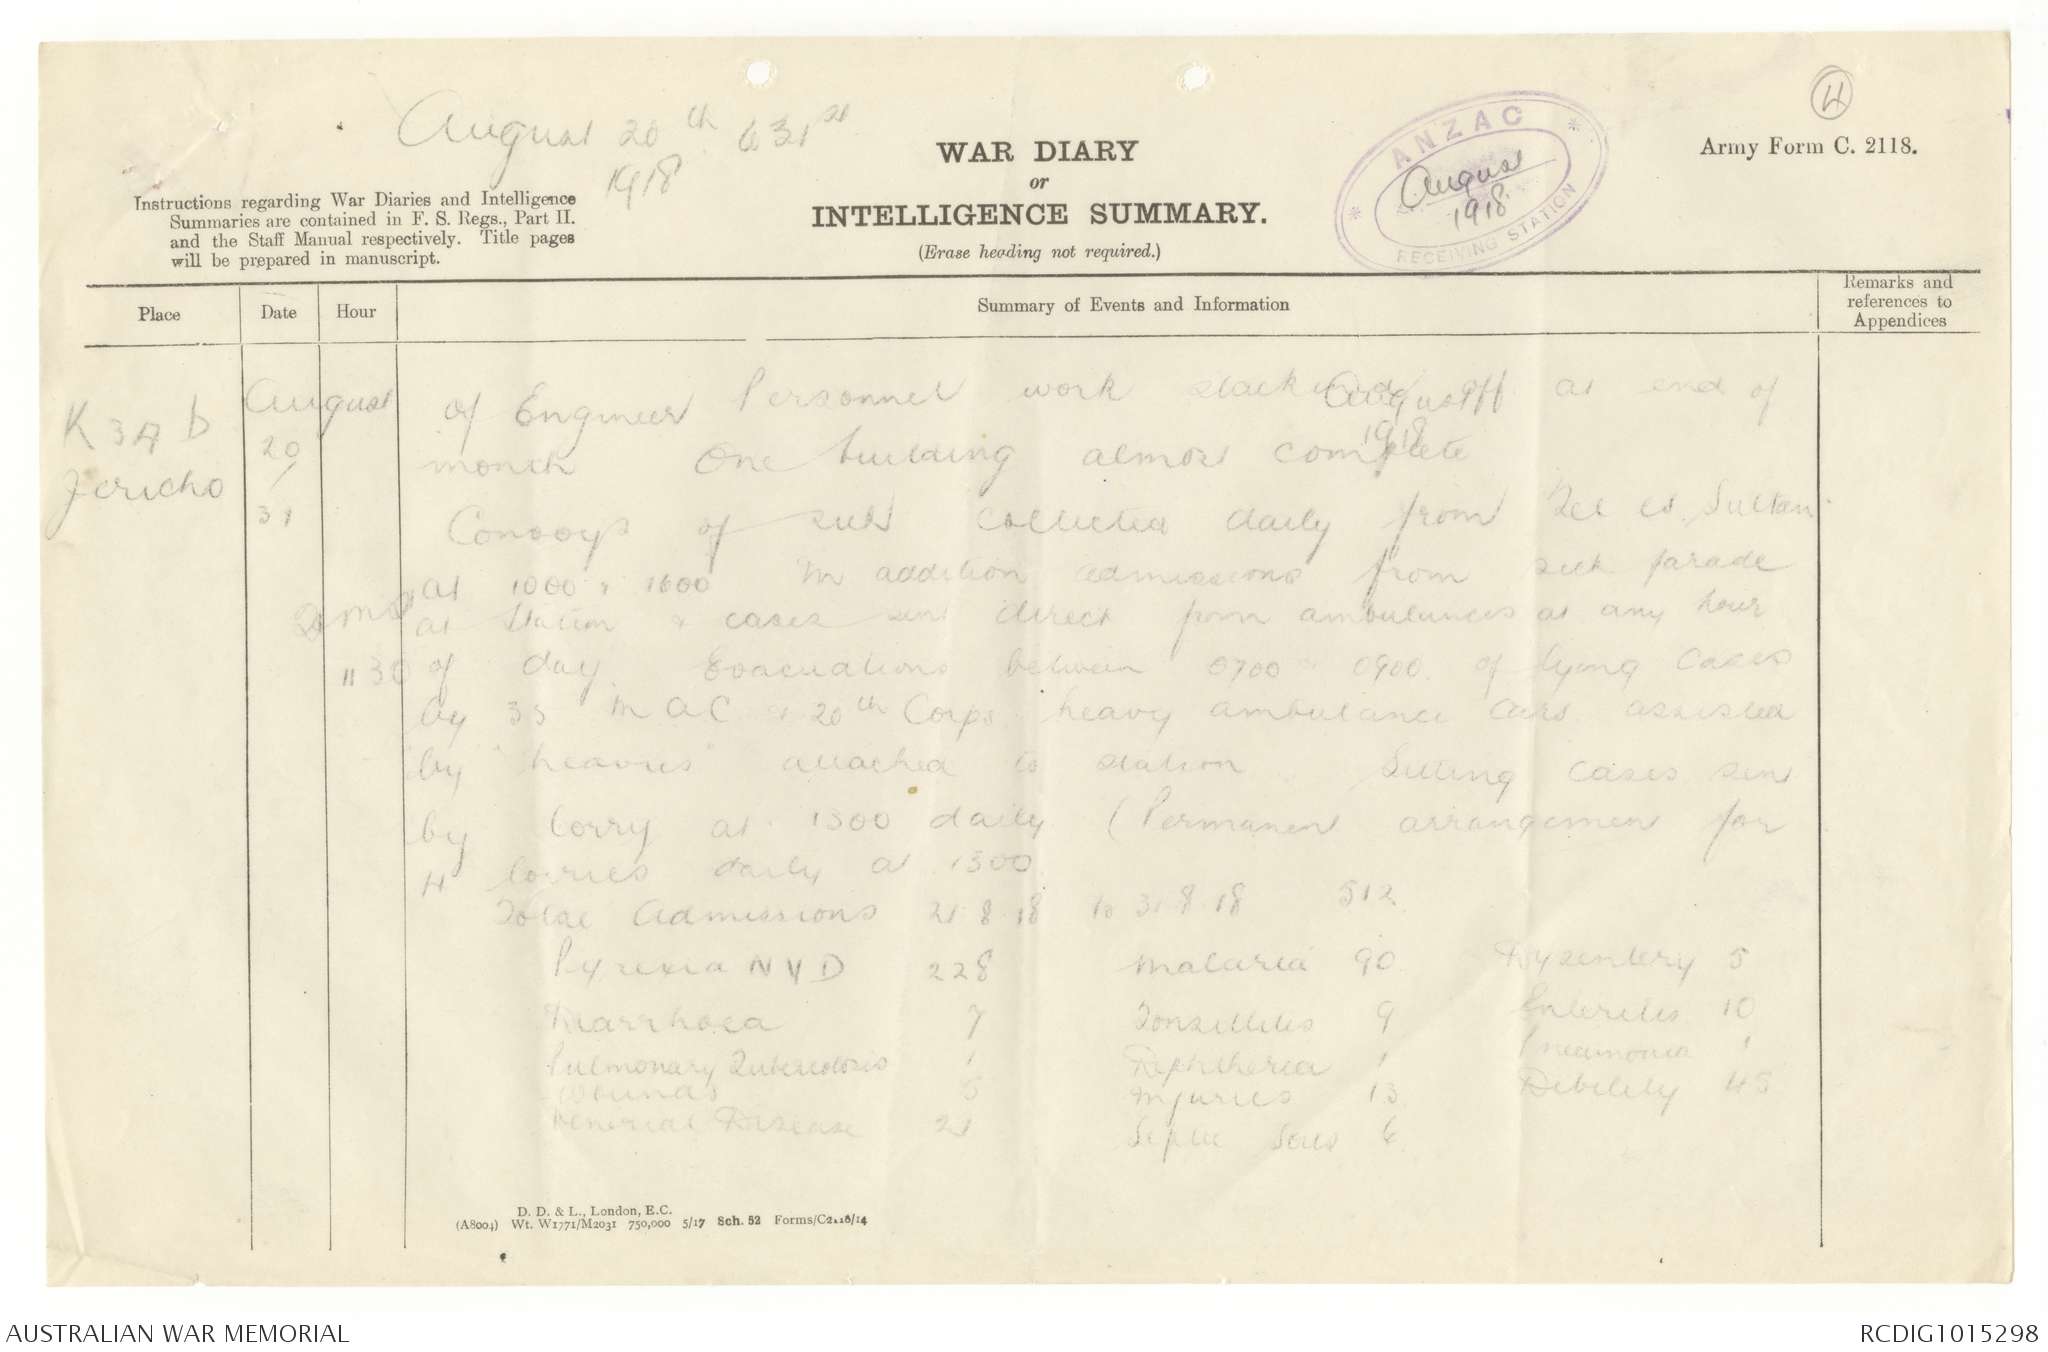 4
August 20th to 31st
1918
ANZAC
August
1918
RECEIVING STATION
Army Form C. 2118.
WAR DIARY
or
INTELLIGENCE SUMMARY.
(Erase heading not required.)
Instructions regarding War Diaries and Intelligence
Summaries are contained in F. S. Regs., Part II.
and the Staff Manual respectively. Title pages
will be prepared in manuscript.
Place Date Hour Summary of Events and Information Remarks and references to Appendices
K 34 b
Jericho
August
20
/
31
August
1918
of Engineer Personnel work slackened off at end of
month One building almost complete
Convoys of sick collected daily from Tel es Sultan
at 1000 & 1600 In addition admissions from sick parade
at station & cases sent direct from ambulances at any hour
1130 of day. Evacuations between 0700 & 0900 of lying cases
by 35 M A C & 20th Corps heavy ambulance cars assisted
by "heavies" attached to station. Sitting cases sent
by lorry at 1300 daily (Permanent arrangement for
4 lorries daily at 1300
Total Admissions 21.8.18 to 31.8.18 512
Pyrexia N Y D 228 Malaria 90 Dysentery 5
Diarrhoea 7 Tonsillitis 9 Enteritis 10
Pulmonary Tuberculosis 1 Diphtheria 1 Pneumonia 1
Wounds 5 Injuries 13 Debility 45
Venereal Disease 21 Septic Sores 6
D. D. & L., London, E.C.
(A8004) Wt. W1771/M2031 750,000 5/17 Sch. 52 Forms/C2118/14
AUSTRALIAN WAR MEMORIAL
RCDIG1015298